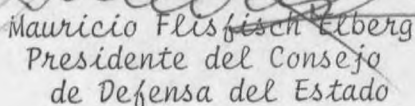 Mauricio Flisfisch Elberg
Presidente del Consejo
de Defensa del Estado